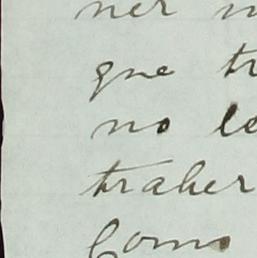 ner
que
no
traher
Como